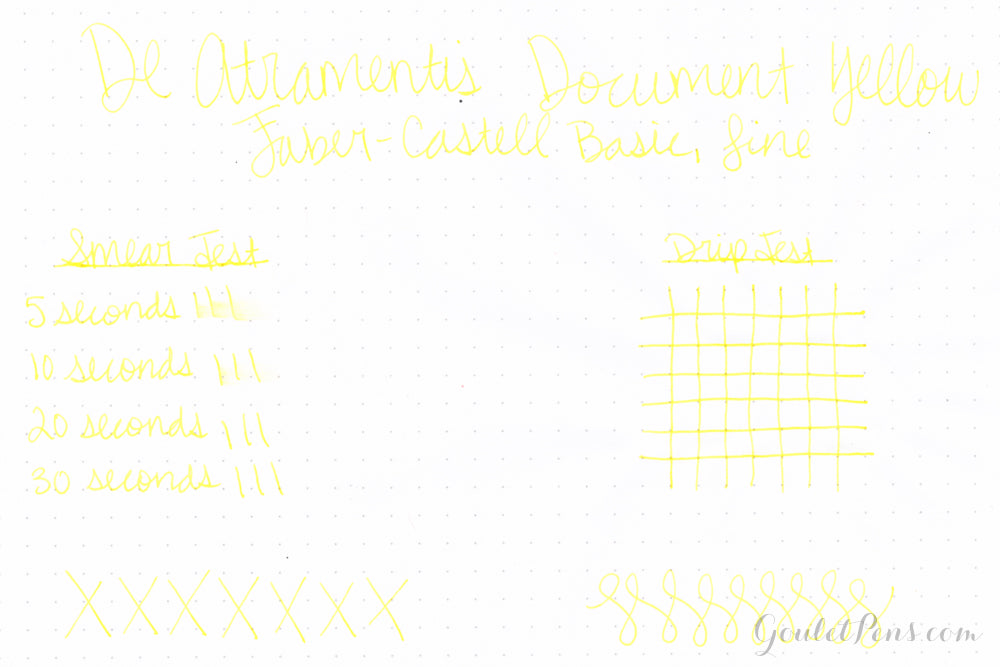 De Atramentis Document Yellow
Faber-Castell Basic, fine
Smear Test
5 seconds
10 seconds
20 seconds
30 seconds
Drip Test
XXXXXXX
GouletPens.com